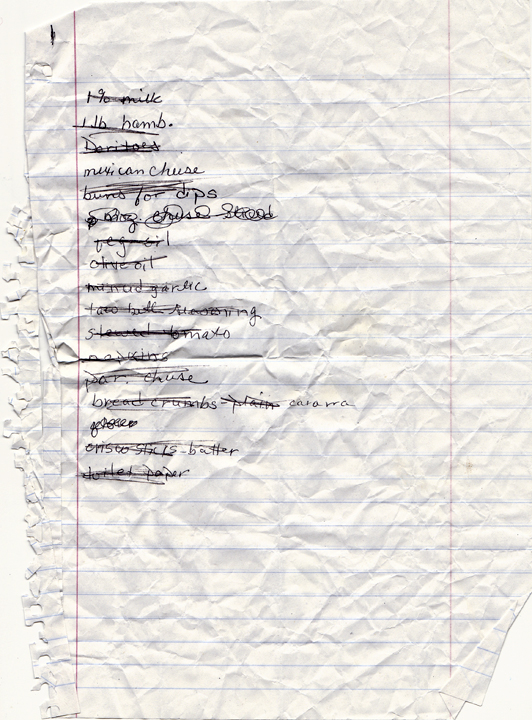 1% milk
1 lb hamb.
Doritoes
mexican chuse
buns for dips
veg oil
olive oil
minud garlic
taco bell seasoning
stewed tomato
napkins
par. chuse
bread crumbs - plain
crisco stiks - butter
toilet paper